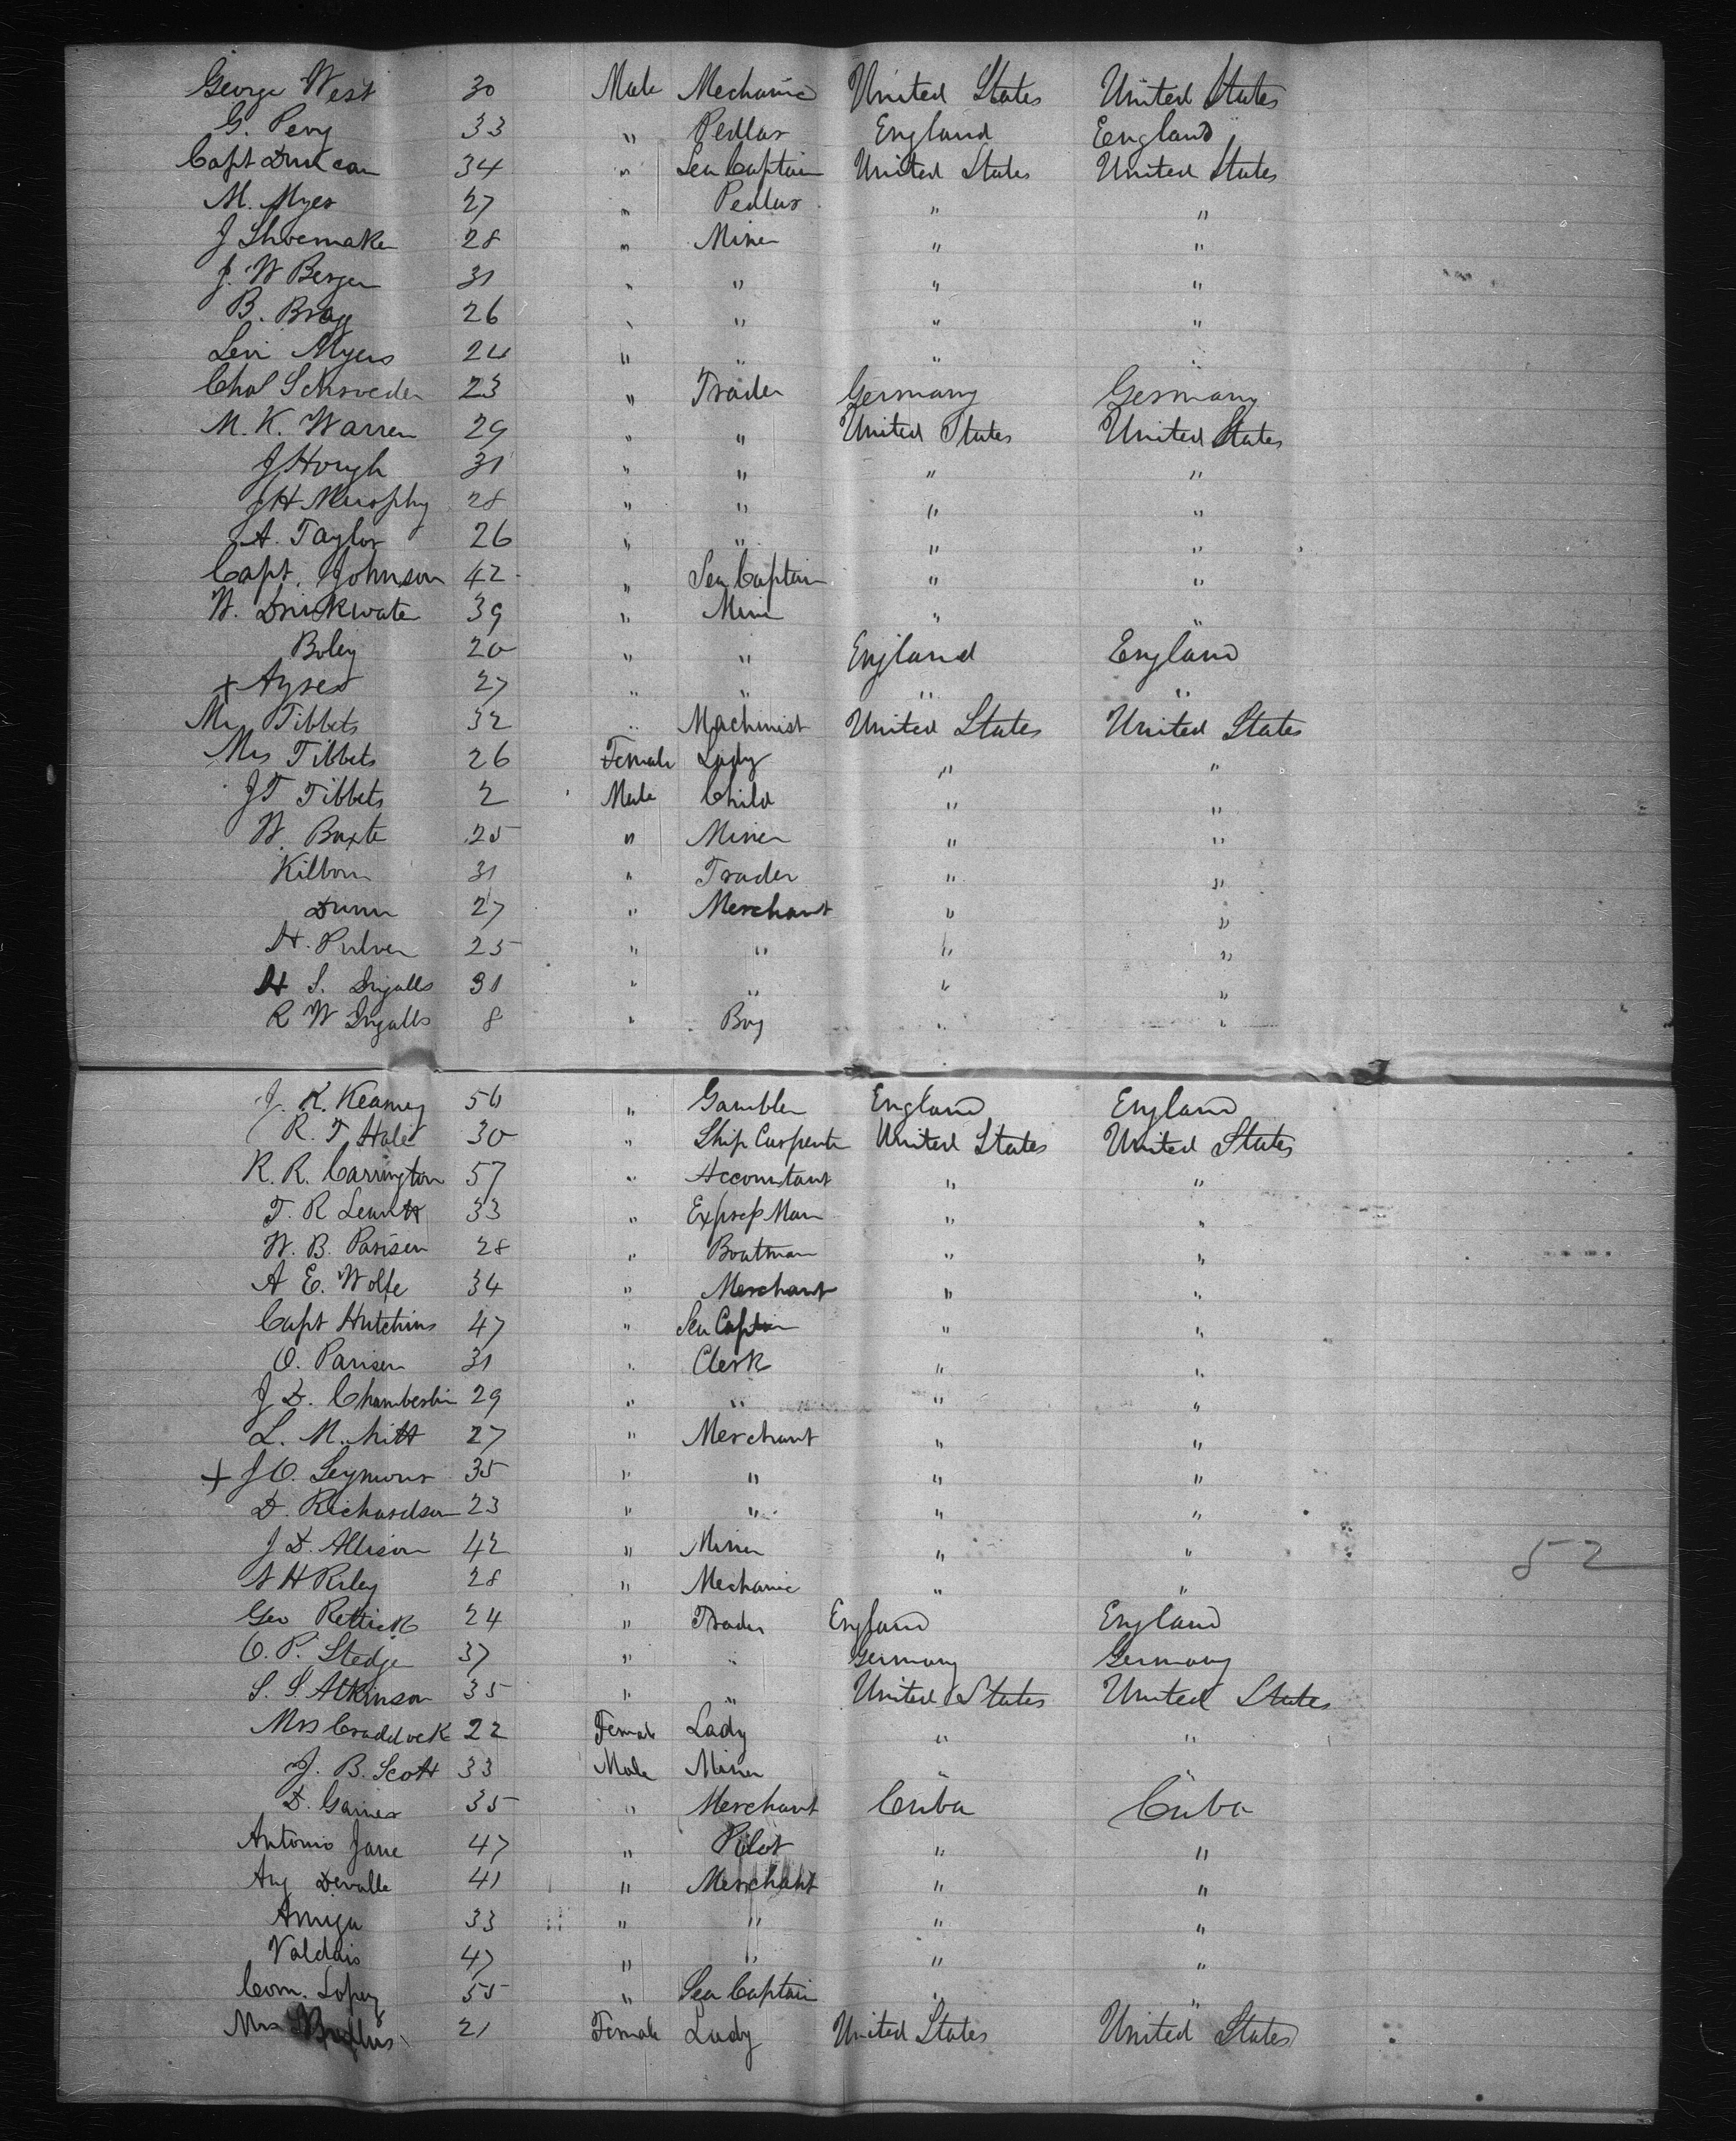 George West 30 Male Mechanic United States United States
G. Pery 33 " Pedlar England England
Capt Duncan 34 " Sea Captain United States United States
M. Myer 27 " Pedlar " "
J Shoemaker 28 " Miner " "
J. W Berger 31 " " " "
B. Bray 26 " " " "
Levi Myers 24 " " " "
Chas Schroeder 23 " Trader Germany Germany
M. K. Warren 29 " " United States United States
J Hough 31 " " " "
J H Murphy 28 " " " "
A. Taylor 26 " " " "
Capt. Johnson 42 " Sea Captain " "
W. Drinkwater 39 " Miner " "
Boley 20 " " England England
+ Ayres 27 " " " "
Mr Tibbets 32 " Machinist United States United States
Mrs Tibbets 26 Female Lady " "
J T Tibbets 2 Male Child " "
W. Baxte 25 " Miner " "
Kilborn 31 " Trader " "
Dunn 27 " Merchant " "
H. Pulver 25 " " " "
H S. Ingalls 31 " " " "
R W Ingalls 8 " Boy " "
J. K. Kearney 56 " Gambler England England
R. T Hale 30 " Ship Carpenter United States United States
R. R. Carrington 57 " Accountant " "
T. R Leavitt 33 " Express Man " "
W. B. Parisen 28 " Boatman " "
A E. Wolfe 34 " Merchant " "
Capt Hutchins 47 " Sea Captain " "
O. Parisen 31 " Clerk " "
J D. Chamberlin 29 " " " "
L. M. hitt 27 " Merchant " "
+ J O. Seymour 35 " " " "
D. Richardson 23 " " " "
J D. Allison 42 " Miner " "
52
H Riley 28 " Mechanic " "
Geo Rettick 24 " Trader England England
O. P. Stedge 37 " " Germany Germany
S. S. Atkinson 35 " " United States United States
Mrs Craddock 22 Female Lady " "
J. B. Scott 33 Male Miner " "
D. Gaines 35 " Merchant Cuba Cuba
Antonio Jane 47 " Pilot " "
Aug Devalle 41 " Merchant " "
Amiga 33 " " " "
Valdais 47 " " " "
Com. Lopez 55 " Sea Captain " "
Mrs 21 Female Lady United States United States